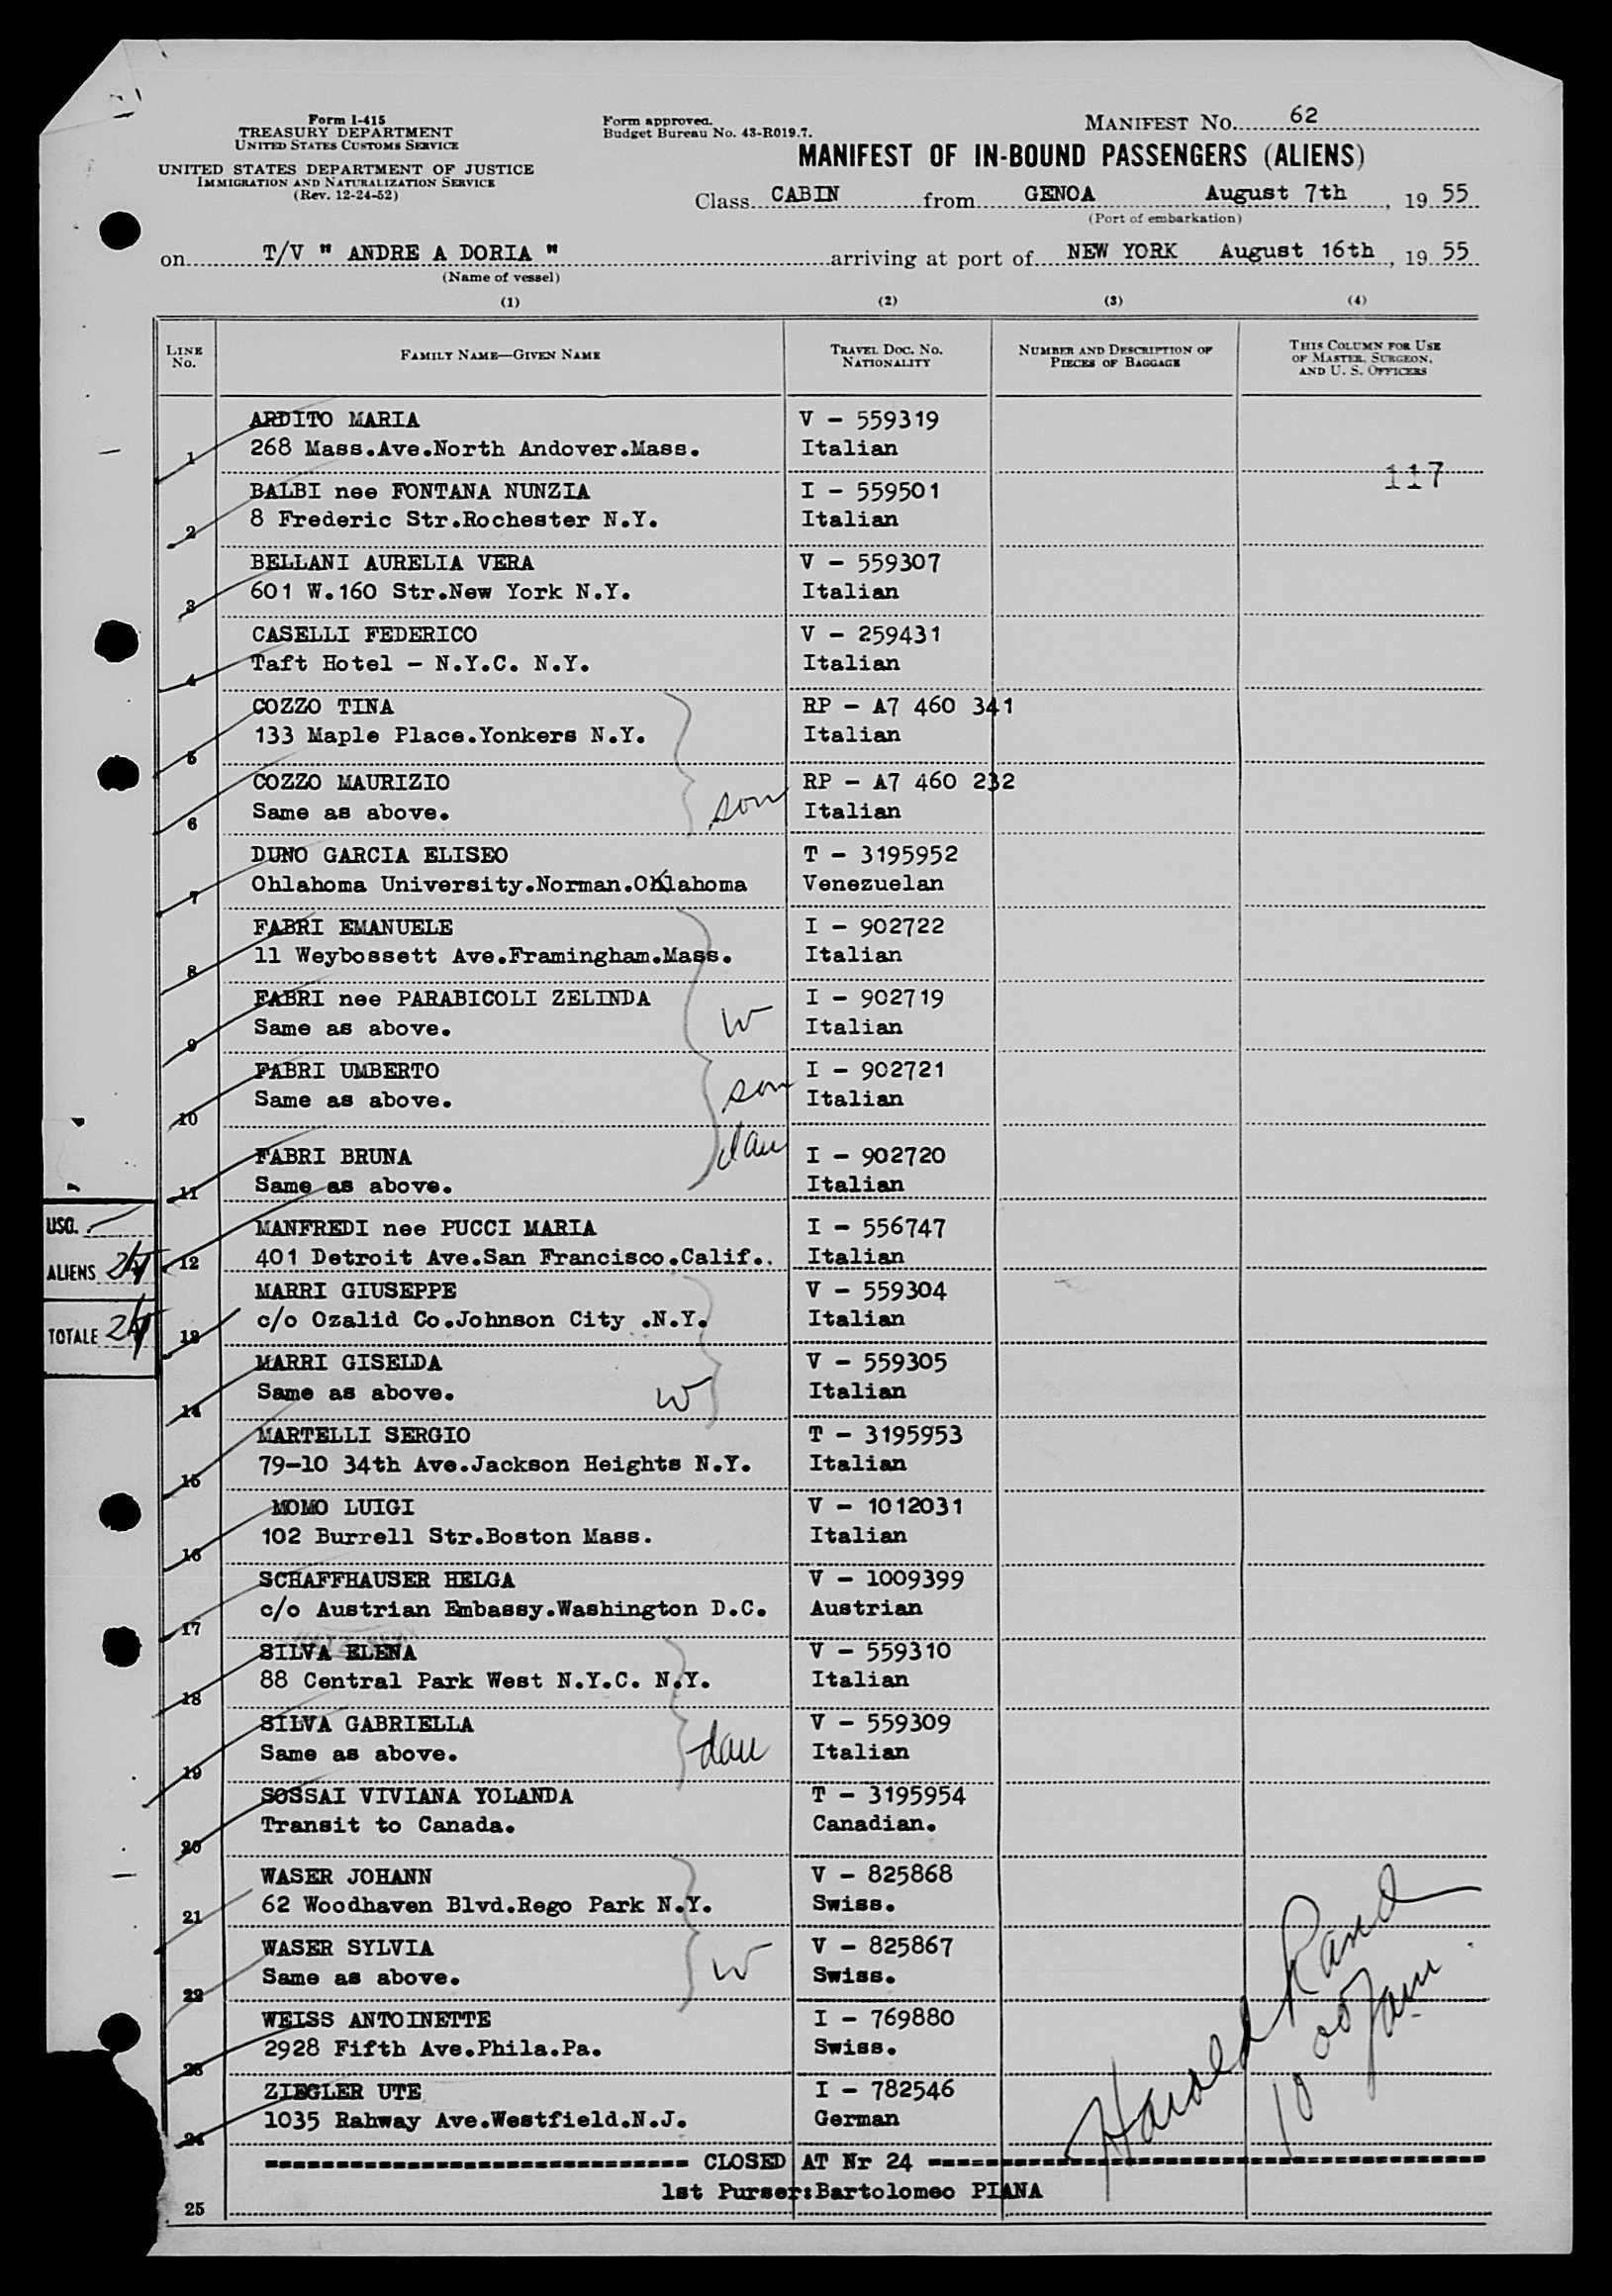 Form I-415
TREASURY DEPARTMENT
UNITED STATES CUSTOMS SERVICE
UNITED STATES DEPARTMENT OF JUSTICE
IMMIGRATION AND NATURALIZATION SERVICE
(Rev. 12-24-52)
Form approved.
Budget Bureau No. 43-R019.7.
MANIFEST NO. 62
MANIFEST OF IN-BOUND PASSENGERS (ALIENS)
Class CABIN from GENOA August 7th, 19 55
(Port of embarkation)
on T/V " ANDRE A DORIA " arriving at port of NEW YORK August 16th, 19 55
(Name of vessel)
(1) (2) (3) (4)
LINE NO. FAMILY NAME—GIVEN NAME TRAVEL DOC. NO. NATIONALITY NUMBER AND DESCRIPTION OF PIECES OF BAGGAGE THIS COLUMN FOR USE OF MASTER, SURGEON, AND U. S. OFFICERS
ARDITO MARIA V - 559319
1 268 Mass.Ave.North Andover.Mass. Italian
117
BALBI nee FONTANA NUNZIA I - 559501
2 8 Frederic Str.Rochester N.Y. Italian
BELLANI AURELIA VERA V - 559307
3 601 W.160 Str.New York N.Y. Italian
CASELLI FEDERICO V - 259431
4 Taft Hotel - N.Y.C. N.Y. Italian
COZZO TINA RP - A7 460 341
5 133 Maple Place.Yonkers N.Y. Italian
COZZO MAURIZIO RP - A7 460 232
6 Same as above. son Italian
DUNO GARCIA ELISEO T - 3195952
7 Ohlahoma University.Norman.Oklahoma Venezuelan
FABRI EMANUELE I - 902722
8 11 Weybossett Ave.Framingham.Mass. Italian
FABRI nee PARABICOLI ZELINDA I - 902719
9 Same as above. W Italian
FABRI UMBERTO I - 902721
10 Same as above. son Italian
FABRI BRUNA dau I - 902720
11 Same as above. Italian
MANFREDI nee PUCCI MARIA I - 556747
12 401 Detroit Ave.San Francisco.Calif.. Italian
MARRI GIUSEPPE V - 559304
13 c/o Ozalid Co.Johnson City .N.Y. Italian
MARRI GISELDA V - 559305
14 Same as above. W Italian
MARTELLI SERGIO T - 3195953
15 79-10 34th Ave.Jackson Heights N.Y. Italian
MOMO LUIGI V - 1012031
16 102 Burrell Str.Boston Mass. Italian
SCHAFFHAUSER HELGA V - 1009399
17 c/o Austrian Embassy.Washington D.C. Austrian
SILVA ELENA V - 559310
18 88 Central Park West N.Y.C. N.Y. Italian
SILVA GABRIELLA V - 559309
19 Same as above. dau Italian
SOSSAI VIVIANA YOLANDA T - 3195954
20 Transit to Canada. Canadian.
WASER JOHANN V - 825868
21 62 Woodhaven Blvd.Rego Park N.Y. Swiss.
WASER SYLVIA V - 825867
22 Same as above. W Swiss.
WEISS ANTOINETTE I - 769880
23 2928 Fifth Ave.Phila.Pa. Swiss.
ZIEGLER UTE I - 782546
24 1035 Rahway Ave.Westfield.N.J. German
CLOSED AT Nr 24
1st Purser:Bartolomeo PIANA
25
USC.
ALIENS 24
TOTALE 24
Harold Rand